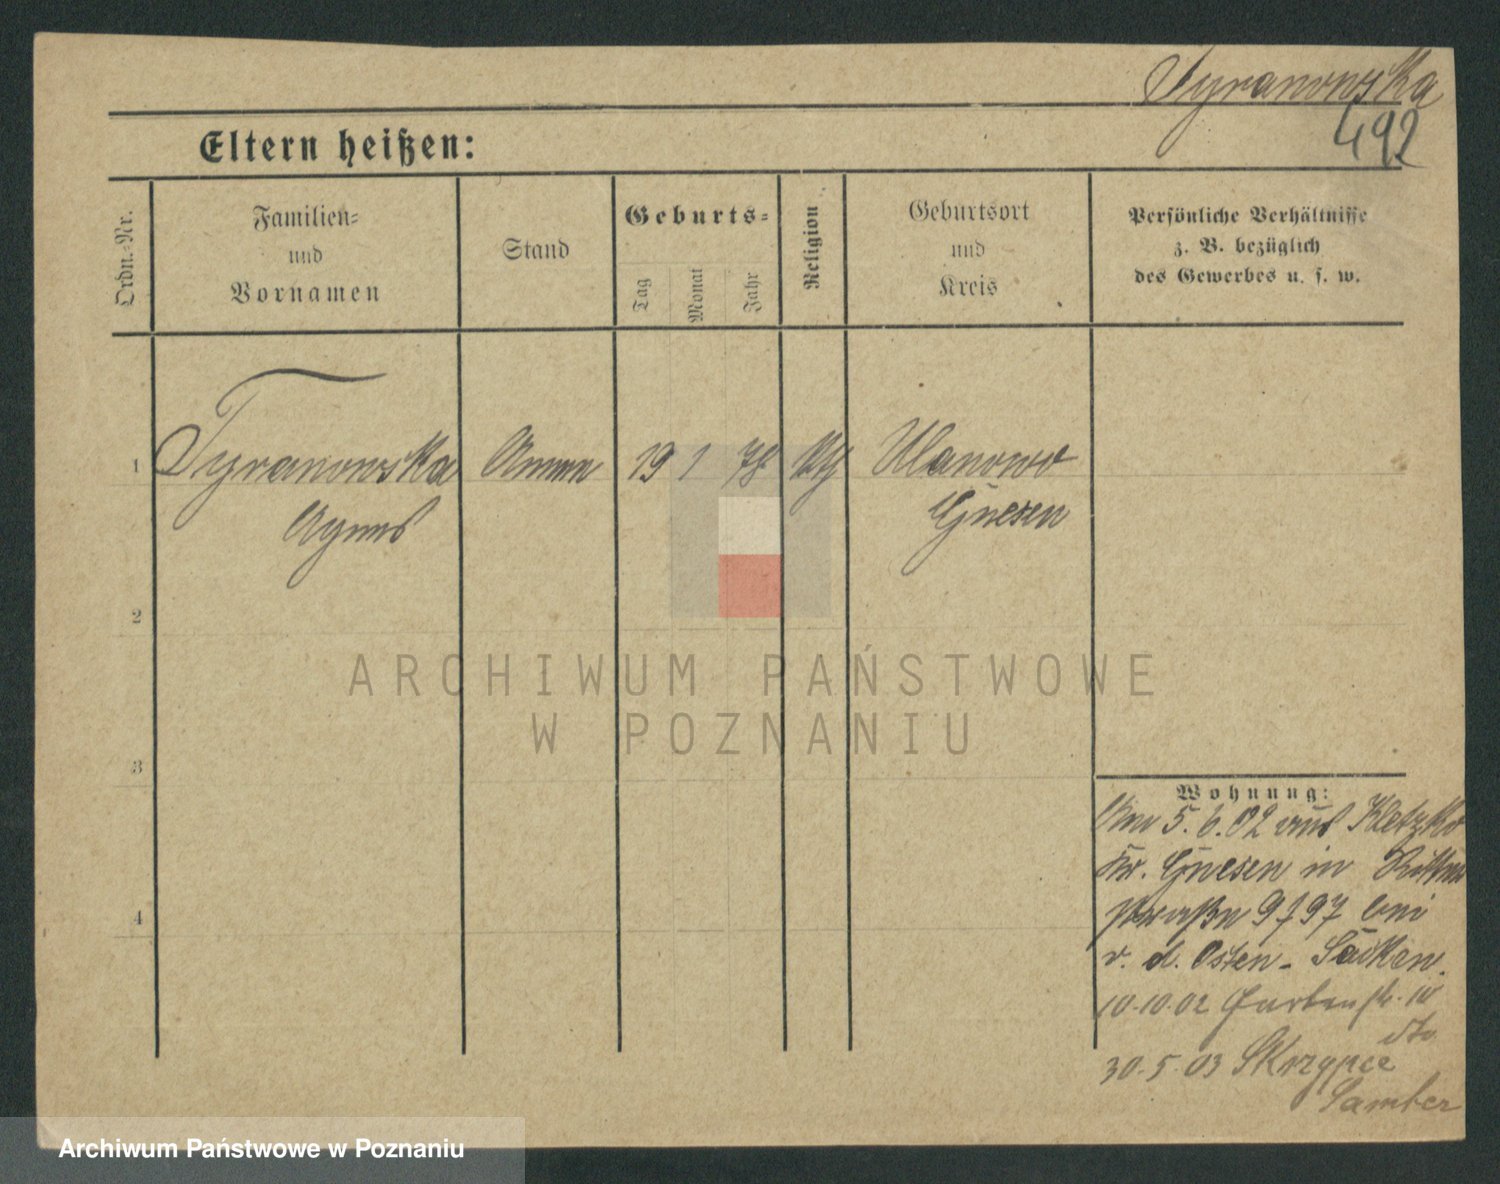 Tyranowska
492
Eltern heißen:
Ordn.-Nr.
Familien-
und
Vornamen
Stand
Geburts-
Tag
Monat
Jahr
Religion
Geburtsort
und
Kreis
Persönliche Verhältnisse
z. B. bezüglich
des Gewerbes u. s. w.
1 Tyranowska Amme 19 1 78 kth Ulanowo
Agnes Gnesen
2
3
4
ARCHIWUM PAŃSTWOWE
W POZNANIU
Wohnung:
5.6.02 aus Kletzko
Kr. Gnesen in Ritter
straße 9 f 97 bei
v. d. Osten-Sacken.
10.10.02 Gartenstr. 10
dto
30.5.03 Skrzypce
Samter
Archiwum Państwowe w Poznaniu